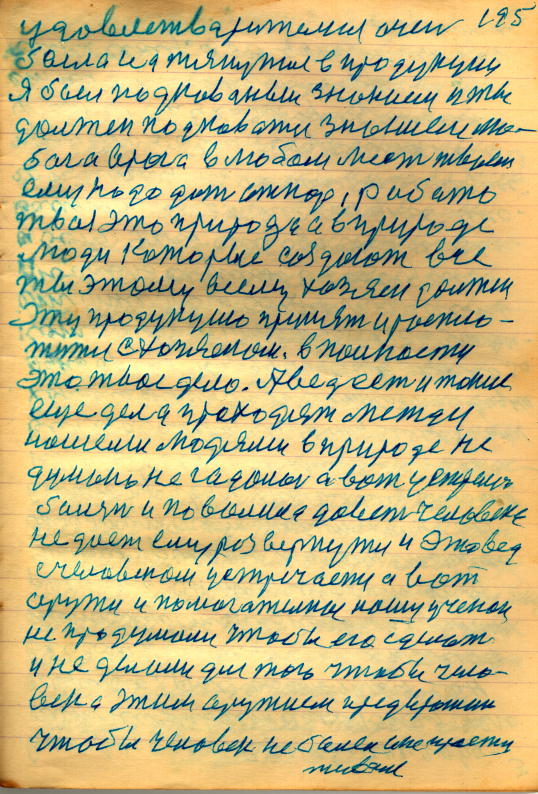 удовлетварителися очен 195
была натянутися в продукции
Я был подкованым знанием и ты
должен подковати знанием лю-
бога врага в любом мест
ему надо дат отпор, работа
твоя это природа а в природе
люди Которые создают все
ты этому всему хозяен должен
эту продукцию принят и распла-
тити с хозяеном. в полности
это твое дело. А ведь ест и такие
еще дела проходят между
нашеми людями в природе не
думал не гадалог а вот устреч
балят и по волика давет человека
не дает ему розвернути и это вед
с человеком устречается а вот
оружи и помогателни нашу ученои
не продумали чтобы его сделат
и не делали для того чтобы чело-
века этим оружием предвротит
чтобы человек не балел и не прасты
живал